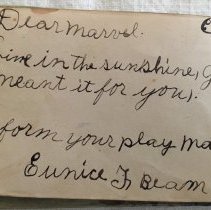 Dear Marvel:
Live in the sunshine, G
meant it for you,.
form your play ma
Eunice F. Beam